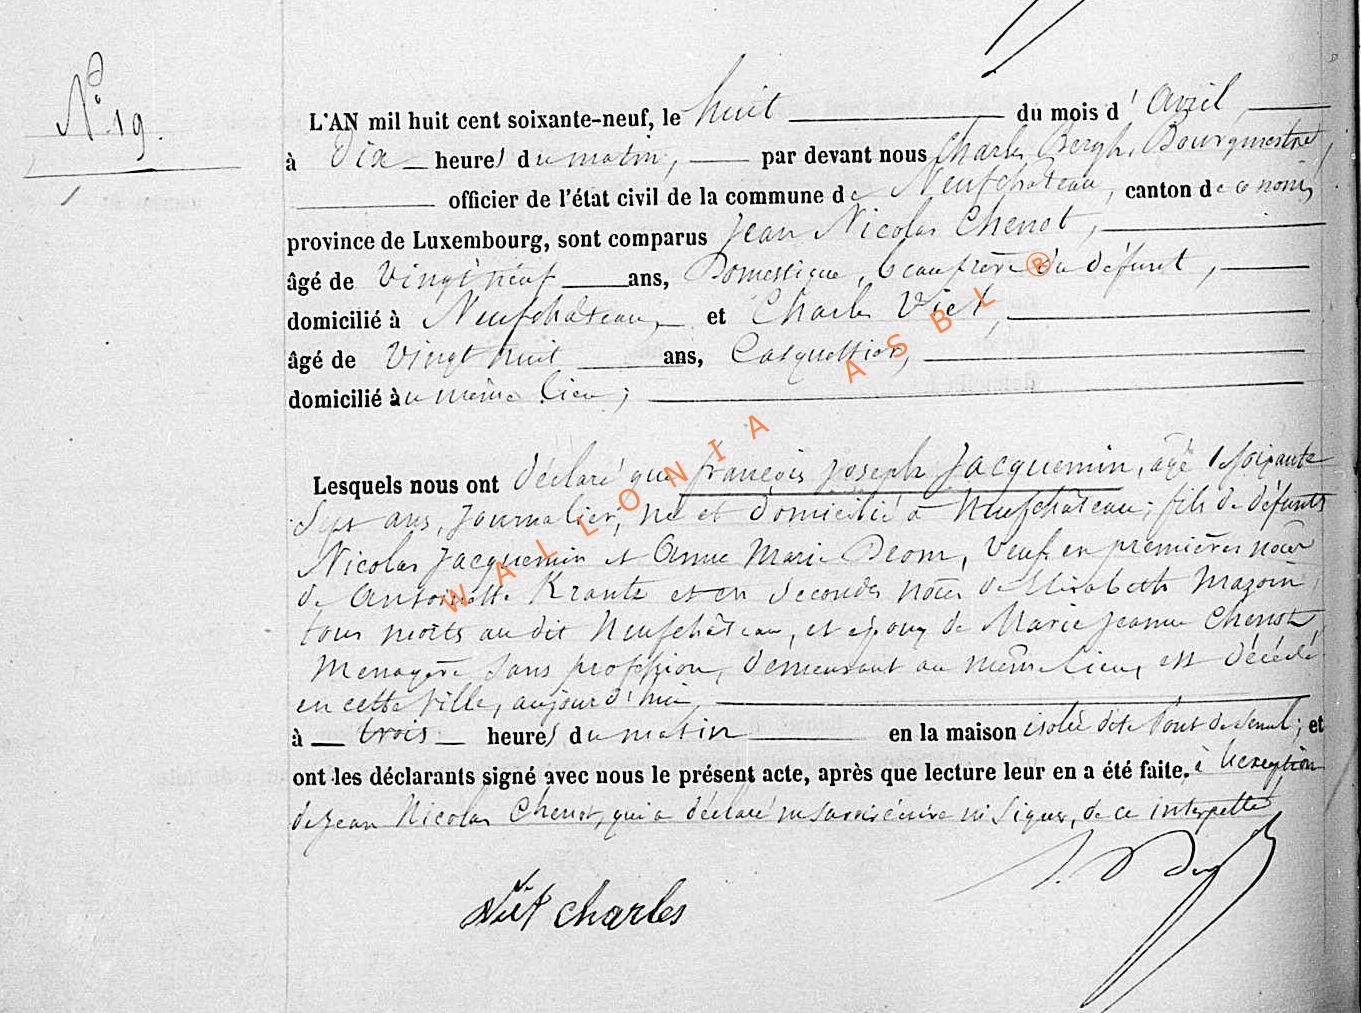 N° 19.
L'AN mil huit cent soixante-neuf, le huit du mois d'avril,
à Dix heures du matin, par devant nous Charles Bergh, Bourgmestre,
officier de l'état civil de la commune de Neufchâteau, canton de ce nom,
province de Luxembourg, sont comparus Jean Nicolas Chenot,
âgé de vingt neuf ans, Domestique, beaufrère du défunt,
domicilié à Neufchâteau, et Charles Viet,
âgé de vingt huit ans, Casquettier,
domicilié au même lieu;
Lesquels nous ont déclaré que françois joseph Jacquemin, âgé de soixante
sept ans, journalier, né et domicilié à Neufchâteau; fils de défunts
Nicolas Jacquemin et Anne Marie Deom, veuf en premières noces
de Antoinette Krantz et en secondes noces de Elisabeth Mazoin
tous morts au dit Neufchâteau, et époux de Marie Jeanne Chenot,
Menagère sans profession, demeurant au même lieu, est décédé
en cette ville, aujourd'hui,
à trois heures du matin en la maison isolée dite Pont de ; et
ont les déclarants signé avec nous le présent acte, après que lecture leur en a été faite. à l'exception
de Jean Nicolas Chenot, qui a déclaré ne savoir écrire ni signer, de ce interpellé
Viet charles
WALLONIA ASBL ®